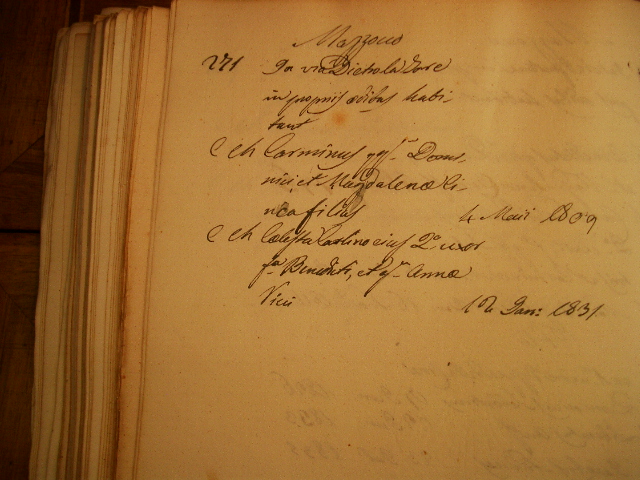 Mazzocco
271 In via Dietro la Torre
in propriis ædibus habi-
tant
C Ch Carminus qm Domi-
nici, et Magdalenæ Ci-
filius 4 Maii 1809
C Ch Cælesta Carlino eius 2a uxor
fa Benedicti, et qm Annæ
Vicii 12 Jan: 1831